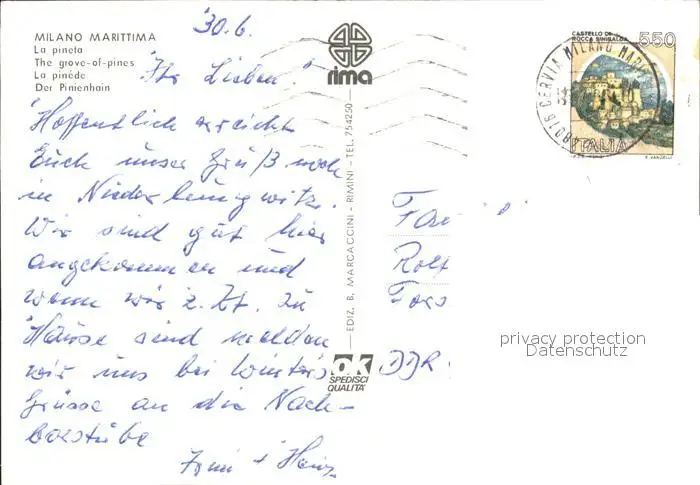 MILANO MARITTIMA
La pineta
The grove-of-pines
La pinède
Der Pinienhain
30.6.
Ihr Lieben!
Hoffentlich erreicht
Euch unser Gruß noch
in Niederlungwitz.
Wir sind gut hier
angekommen und
wenn wir z. Zt. zu
Hause sind melden
wir uns bei Winters
Grüsse an die Nach-
barstube
Heinz
rima
EDIZ. B. MARCACCINI - RIMINI - TEL. 754250
ok
SPEDISCI
QUALITA'
CASTELLO DI
ROCCA SINIBALDA
550
ITALIA
E. VANGELLI
48016 CERVIA MILANO MAR
Fam
Rolf
DDR
privacy protection
Datenschutz